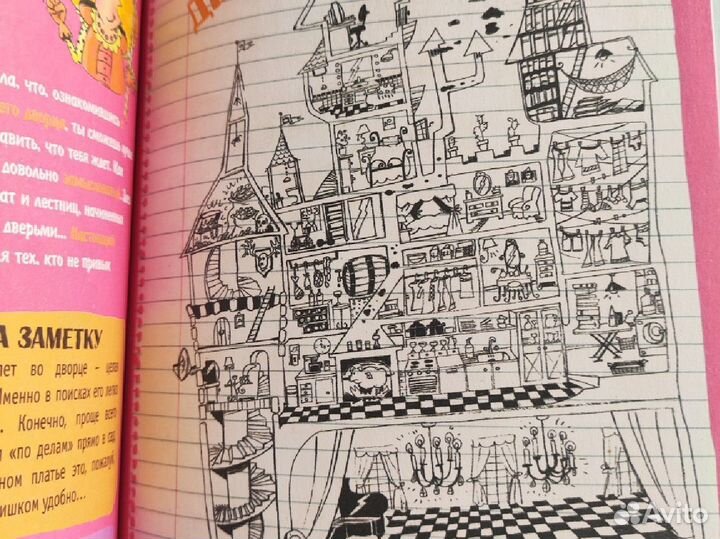 ла, что, ознакомившись
его дворца, ты сможешь
авить, что тебя ждет. Как
довольно
ат и лестниц, начиненных
дверьми... Настоящий
я тех, кто не привык
А ЗАМЕТКУ
лет во дворце – целая
Именно в поисках его легко
. Конечно, проще всего
и «по делам» прямо в сад,
ном платье это, пожалуй,
ишком удобно...
Avito